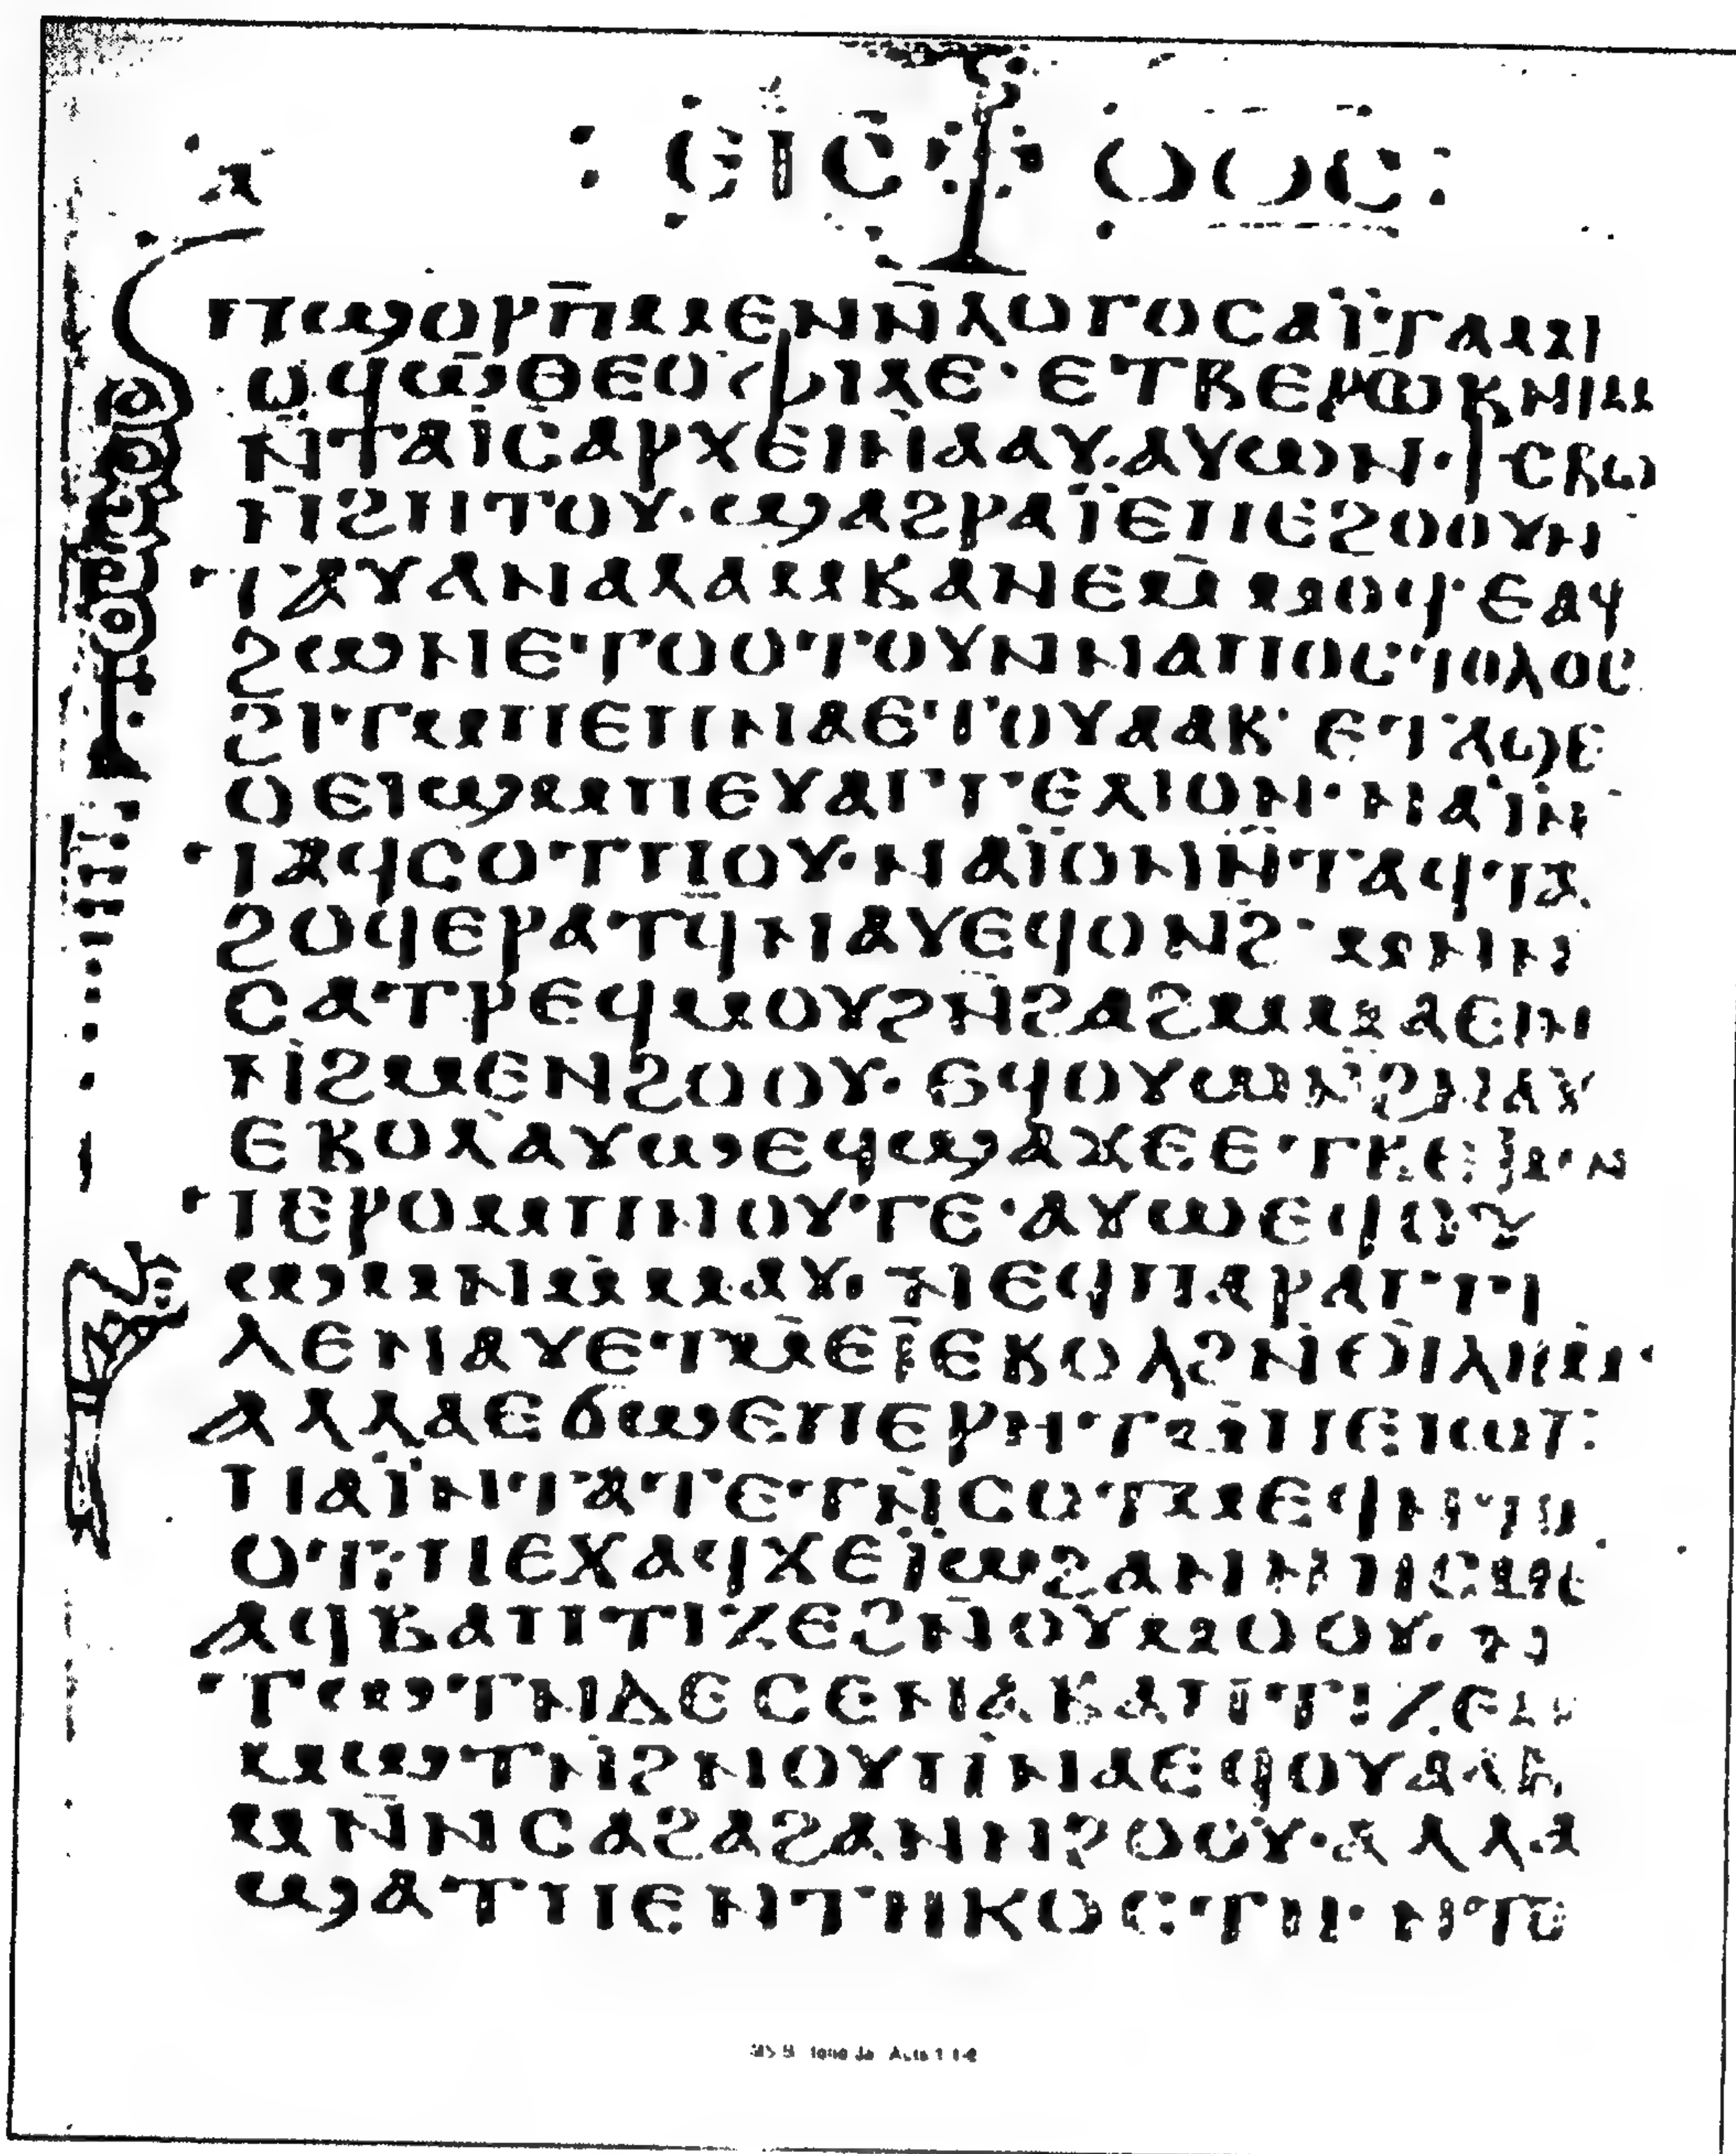 ⲁ̄
: ⲉⲓⲥ ⲑⲩⲥ :
ⲡϣⲟⲣⲡ̄ⲙⲙⲉⲛⲛ̄ⲗⲟⲅⲟⲥⲁⲓ̈ⲧⲁⲙⲓ
ⲟϥⲱ̄ⲑⲉⲟⲫⲓⲗⲉ· ⲉⲧⲃⲉϩⲱⲃⲛⲓⲙ
ⲛ̄ⲧⲁⲓ̄ⲥⲁⲣⲭⲉⲓⲛ̄ⲁⲁⲩ·ⲁⲩⲱⲛ·ϯⲥⲃⲱ
ⲛ̄ϩⲏⲧⲟⲩ·ϣⲁϩⲣⲁⲓ̈ⲉⲡⲉϩⲟⲟⲩⲛ̄
ⲧⲁⲩⲁⲛⲁⲗⲁⲙⲃⲁⲛⲉⲙ̄ⲙⲟϥ·ⲉⲁϥ
ϩⲱⲛⲉⲧⲟⲟⲧⲟⲩⲛⲛⲁⲡⲟⲥⲧⲟⲗⲟⲥ
ϩⲓⲧⲙⲡⲉⲡⲛⲁⲉⲧⲟⲩⲁⲁⲃ· ⲉⲧⲁϣⲉ
ⲟⲉⲓϣⲙⲡⲉⲩⲁⲅⲅⲉⲗⲓⲟⲛ·ⲛⲁⲓ̈ⲛ̄
ⲧⲁϥⲥⲟⲧⲡⲟⲩ·ⲛⲁⲓ̈ⲟⲛⲛ̄ⲧⲁϥⲧⲁ
ϩⲟϥⲉⲣⲁⲧϥ̄ⲛⲁⲩⲉϥⲟⲛϩ̄·ⲙⲛⲛ
ⲥⲁⲧⲣⲉϥⲙⲟⲩϩⲛ̄ϩⲁϩⲙⲙⲁⲉⲓⲛ
ⲛ̄ϩⲙⲉⲛϩⲟⲟⲩ·ⲉϥⲟⲩⲱⲛ̄ϩⲛⲁⲩ
ⲉⲃⲟⲗⲁⲩⲱⲉϥϣⲁϫⲉⲉⲧⲃⲉⲧⲙⲛ
ⲧⲉⲣⲟⲙⲡⲛⲟⲩⲧⲉ·ⲁⲩⲱⲉϥⲟⲩ
ⲱⲙⲛⲙ̄ⲙⲁⲩ·ⲛⲉϥⲡⲁⲣⲁⲅⲅⲓ
ⲗⲉⲛⲁⲩⲉⲧⲙ̄ⲉⲓ̄ⲉⲃⲟⲗϩⲛ̄ⲑⲓⲗⲏⲙ·
ⲁⲗⲗⲁⲉϭⲱⲉⲡⲉⲣⲏⲧⲙ̄ⲡⲉⲓⲱⲧ:
ⲡⲁⲓ̈ⲛⲧⲁⲧⲉⲧⲛ̄ⲥⲟⲧⲙⲉϥⲛⲧⲟ
ⲟⲧ:ⲡⲉϫⲁϥϫⲉⲓ̈ⲱϩⲁⲛⲛⲏⲥⲙⲉ
ⲁϥⲃⲁⲡⲧⲓⲍⲉϩⲛ̄ⲟⲩⲙⲟⲟⲩ·ⲛ
ⲧⲱⲧⲛⲇⲉⲥⲉⲛⲁⲃⲁⲡⲧⲓⲍⲉⲙ
ⲙⲱⲧⲛ̄ϩⲛⲟⲩⲡ̄ⲛⲁⲉϥⲟⲩⲁⲁⲃ
ⲙⲛ̄ⲛⲥⲁϩⲁϩⲁⲛⲛϩⲟⲟⲩ·ⲁⲗⲗⲁ
ϣⲁⲧⲡⲉⲛⲧⲏⲕⲟⲥⲧⲏ·ⲛⲧⲟ